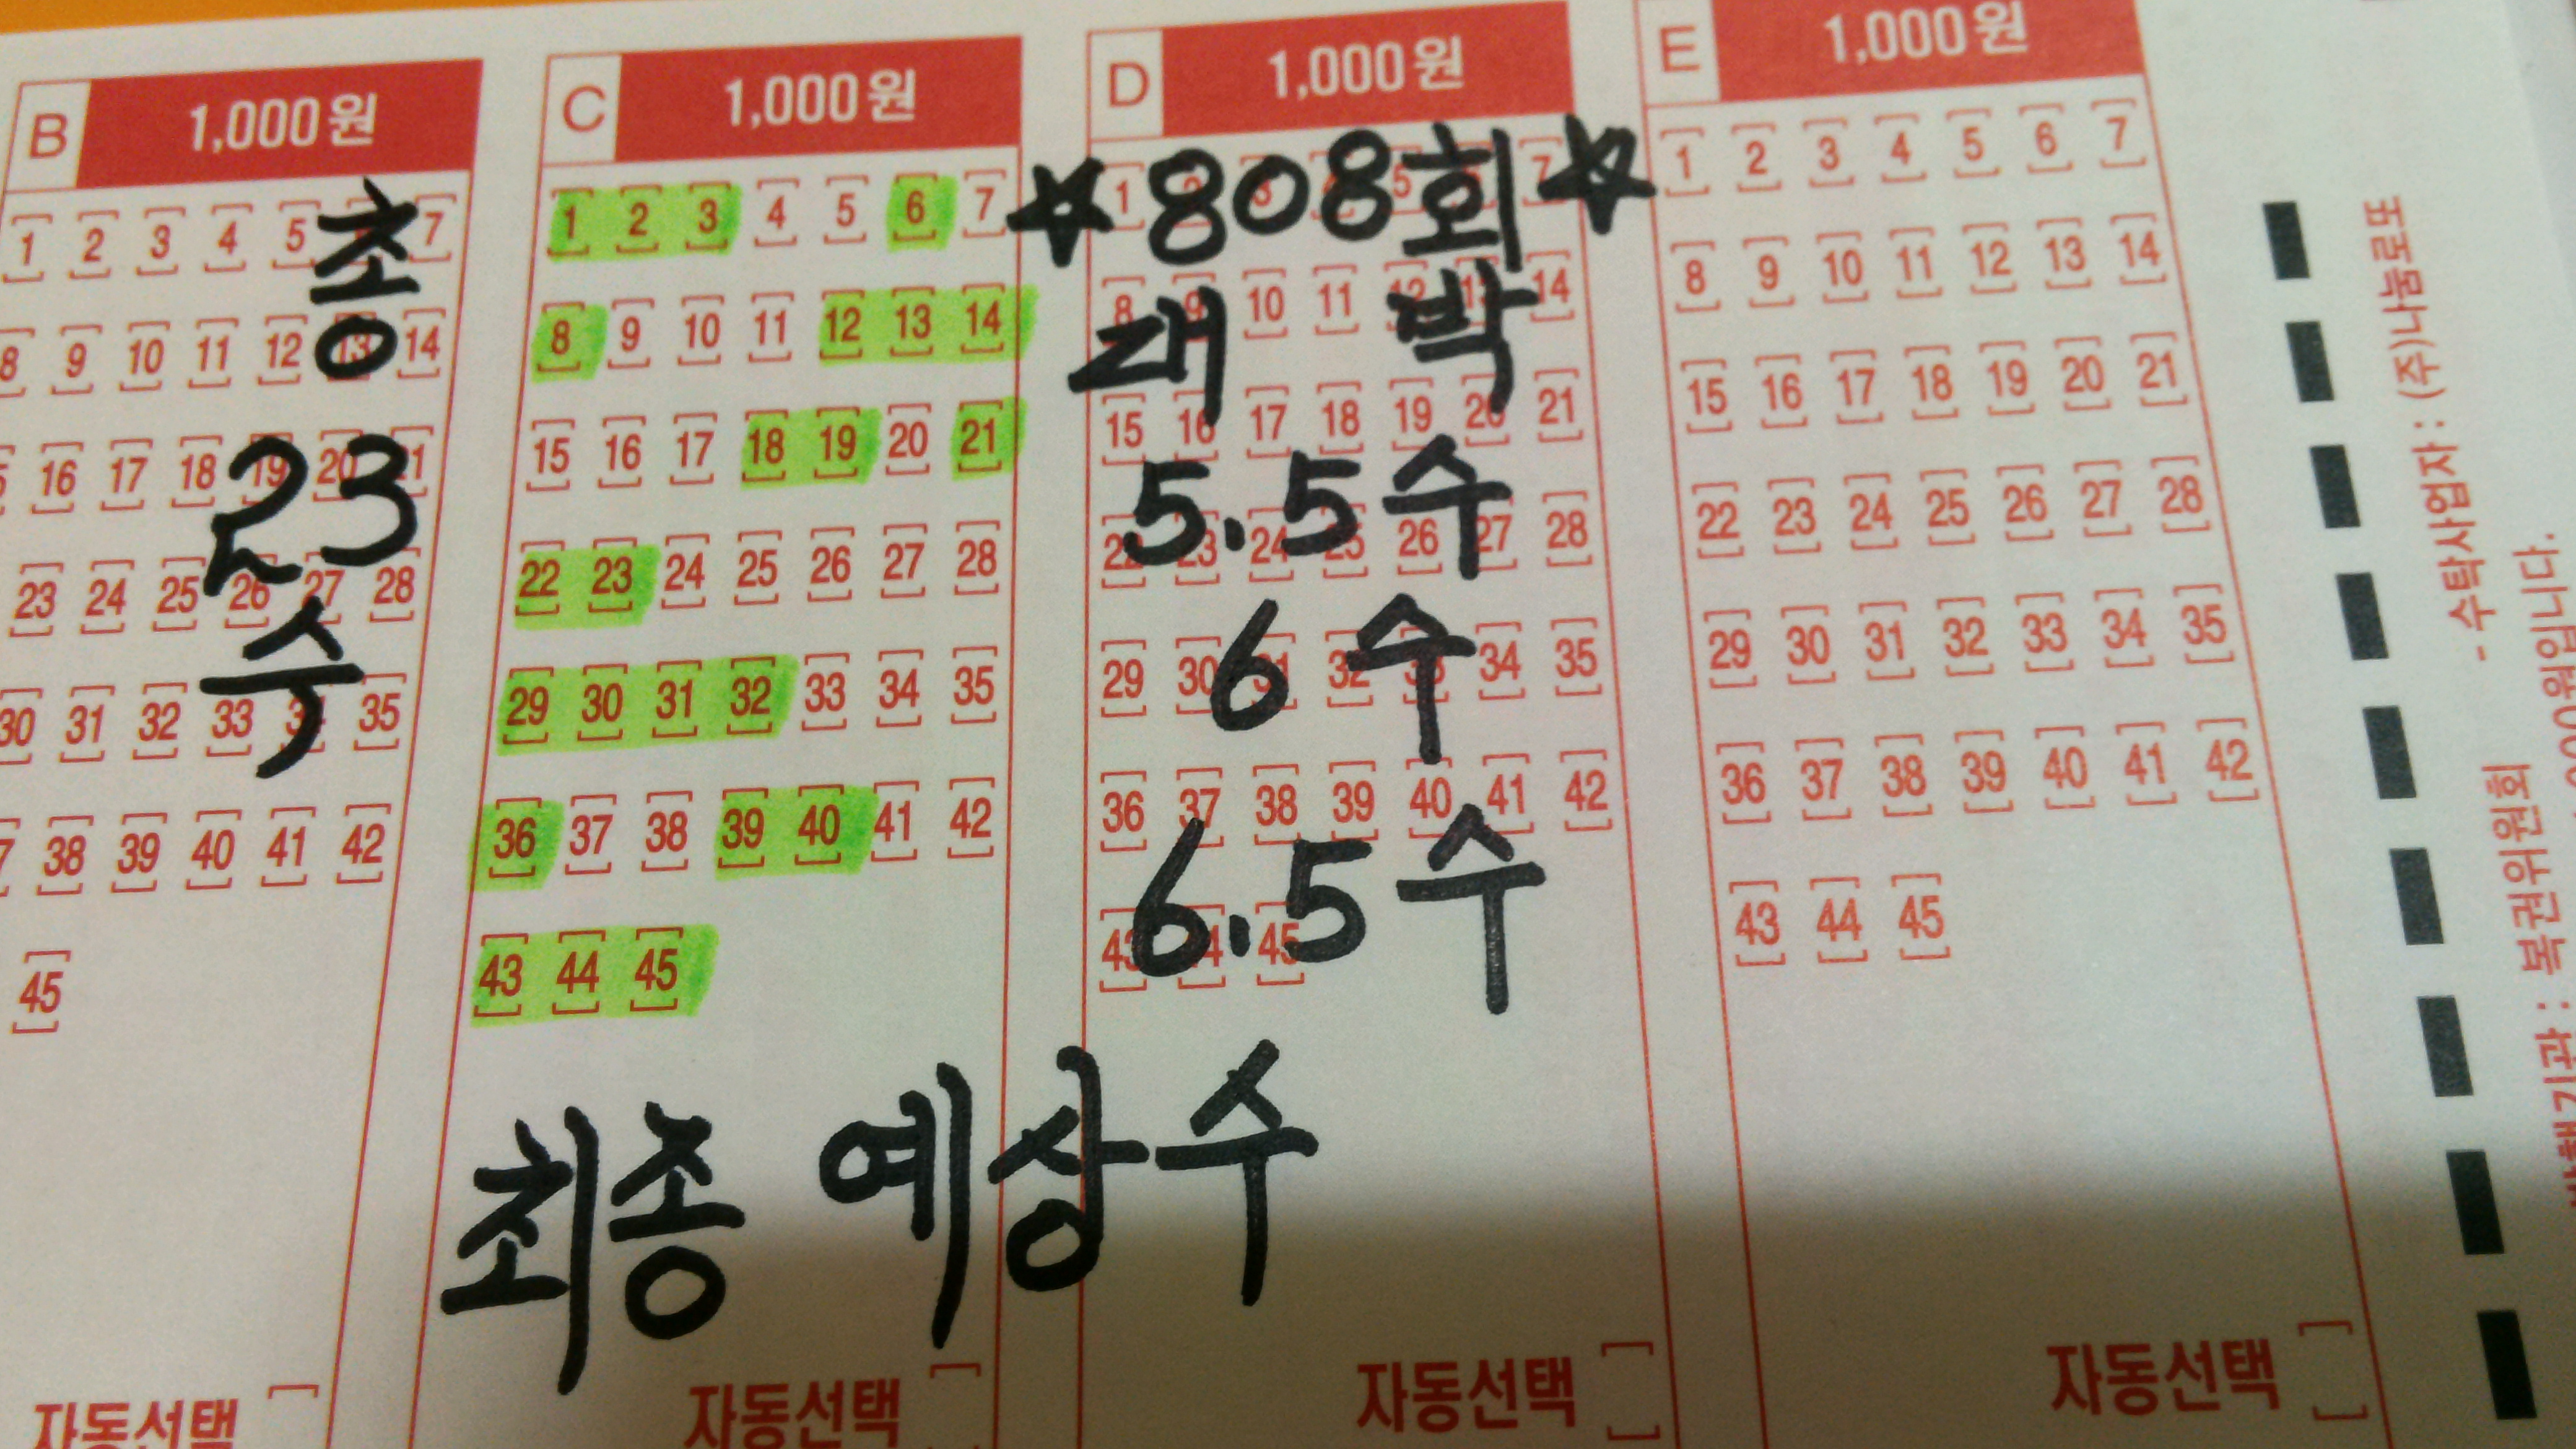 B 1,000원
C 1,000원
D 1,000원
E 1,000원
1 2 3 4 5 7
8 9 10 11 12 13 14
16 17 18 19 20 21
23 24 25 26 27 28
30 31 32 33 34 35
38 39 40 41 42
45
총
23
수
자동선택
1 2 3 4 5 6 7
8 9 10 11 12 13 14
15 16 17 18 19 20 21
22 23 24 25 26 27 28
29 30 31 32 33 34 35
36 37 38 39 40 41 42
43 44 45
최종 예상수
자동선택
☆808회☆
대 박
5.5수
6수
6.5수
1 2 3 5 7
8 9 10 11 12 13 14
15 16 17 18 19 20 21
22 23 24 25 26 27 28
29 30 31 32 33 34 35
36 37 38 39 40 41 42
43 44 45
자동선택
1 2 3 4 5 6 7
8 9 10 11 12 13 14
15 16 17 18 19 20 21
22 23 24 25 26 27 28
29 30 31 32 33 34 35
36 37 38 39 40 41 42
43 44 45
자동선택
- 수탁사업자 : (주)나눔로또
: 복권위원회
원입니다.